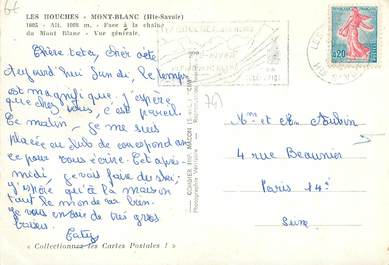 LES HOUCHES - MONT-BLANC (Hte-Savoie)
1605 - Alt. 1008 m. - Face à la chaîne
du Mont Blanc - Vue générale.
Chère tata, cher
Aujourd'hui lundi, le temps
est magnifique. j'espère
que chez vous, c'est pareil.
Ce matin - je me suis
placée au Sub de
ce pour vous écrire. Cet après-
midi, je vais faire du ski,
j'espère qu'à la maison
tout le monde va bien.
Je vous envoie de très gros
baisers.
Caty
« Collectionnez les Cartes Postales ! »
CORBIER IMP. MACON
Photographie Véritable
74
0,20
Mme et Mr Aubin
4 rue Beaunier
Paris 14e
Seine